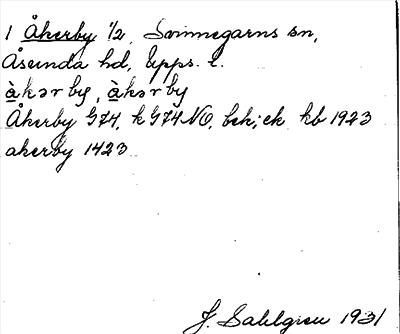 1 Åkerby 1/2, Svinnegarns sn,
Åsunda hd, Upps. l.
àkər by, àkər by
Åkerby G74, k G74 NO, bek; ek kb 1923
akerby 1423
J. Sahlgren 1931